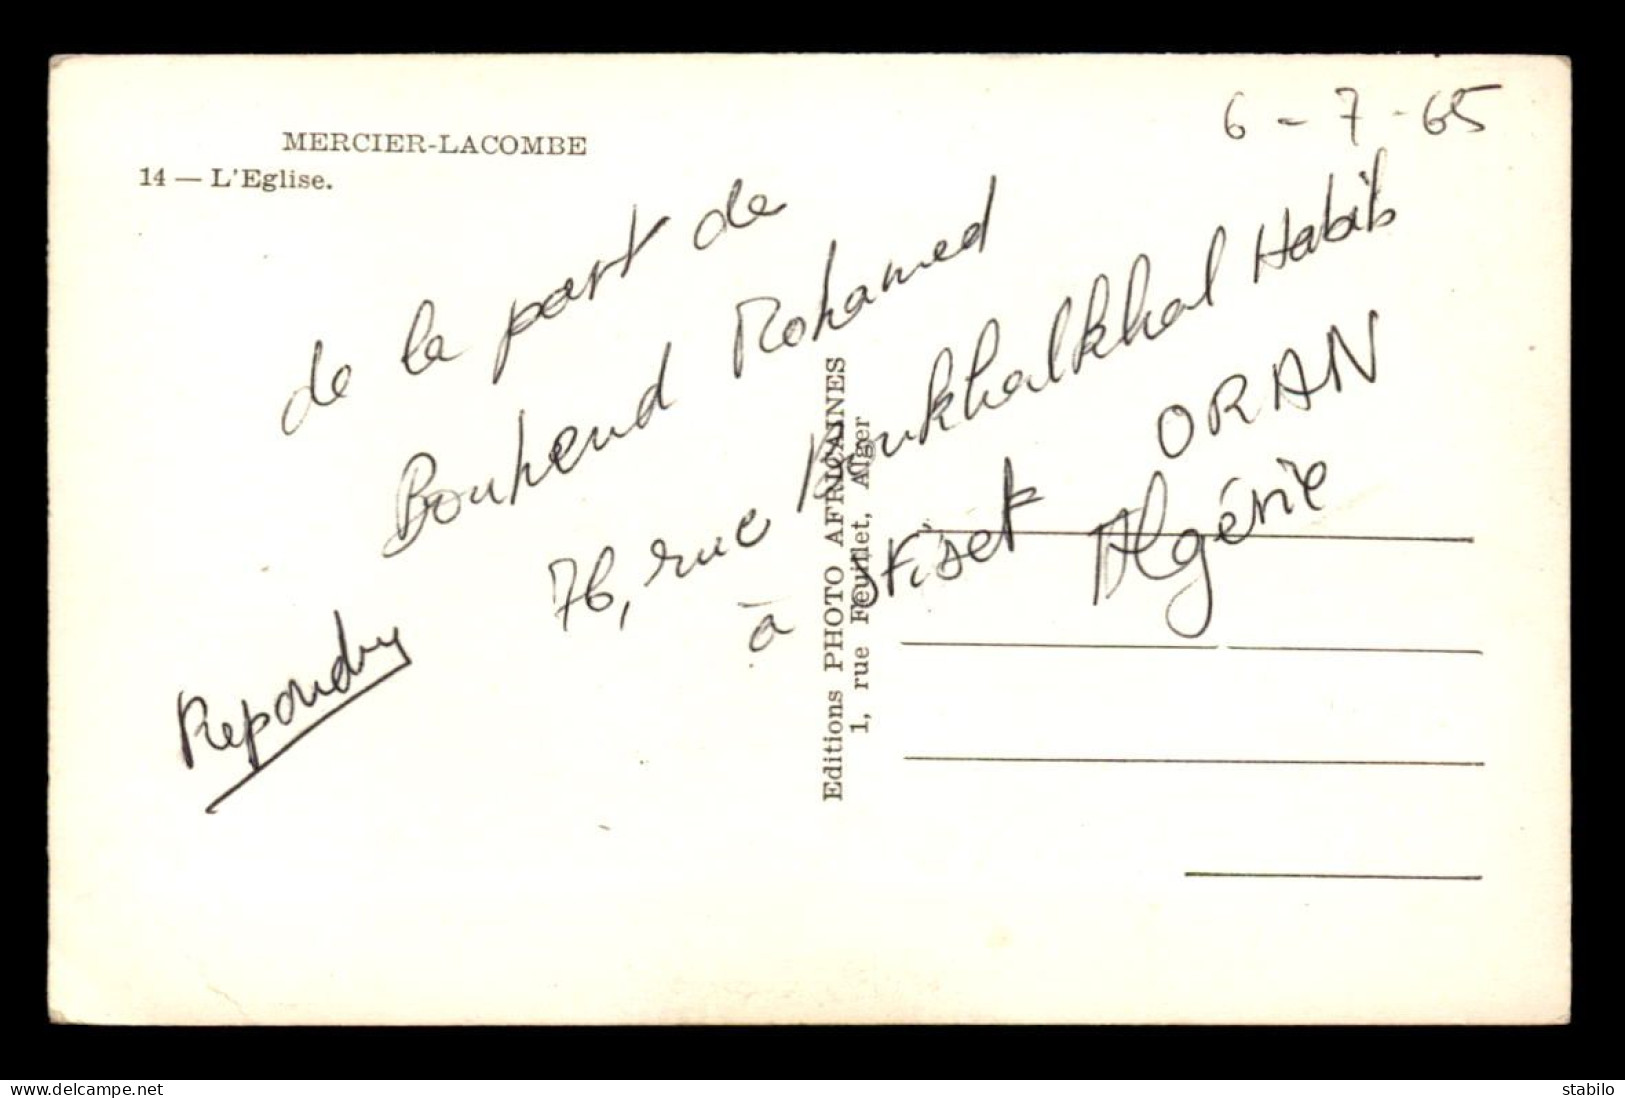 6 - 7 - 65
MERCIER-LACOMBE
14 — L'Eglise.
de la part de
Bouhend Mohamed
76, rue Boukhalkhal Habib
à Sfisef ORAN
Algérie
Repondez
Editions PHOTO AFRICAINES
1, rue Feuillet, Alger
delcampe.net
stabilo